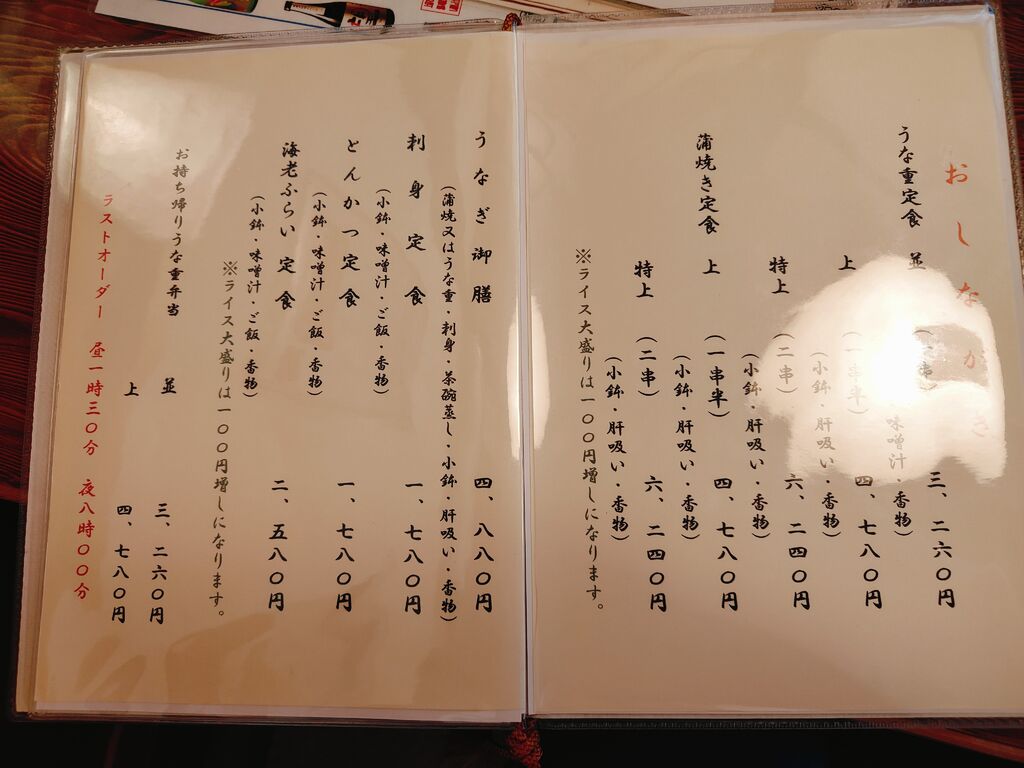 おしながき
うな重定食 並 三、二六〇円
味噌汁・香物)
上 (一串半) 四、七八〇円
(小鉢・肝吸い・香物)
特上 (二串) 六、二四〇円
(小鉢・肝吸い・香物)
蒲焼き定食 上 (一串半) 四、七八〇円
(小鉢・肝吸い・香物)
特上 (二串) 六、二四〇円
(小鉢・肝吸い・香物)
※ライス大盛りは一〇〇円増しになります。
うなぎ御膳 四、八八〇円
(蒲焼又はうな重・刺身・茶碗蒸し・小鉢・肝吸い・香物)
刺身定食 一、七八〇円
(小鉢・味噌汁・ご飯・香物)
とんかつ定食 一、七八〇円
(小鉢・味噌汁・ご飯・香物)
海老ふらい定食 二、五八〇円
(小鉢・味噌汁・ご飯・香物)
※ライス大盛りは一〇〇円増しになります。
お持ち帰りうな重弁当 並 三、二六〇円
上 四、七八〇円
ラストオーダー 昼一時三〇分 夜八時〇〇分